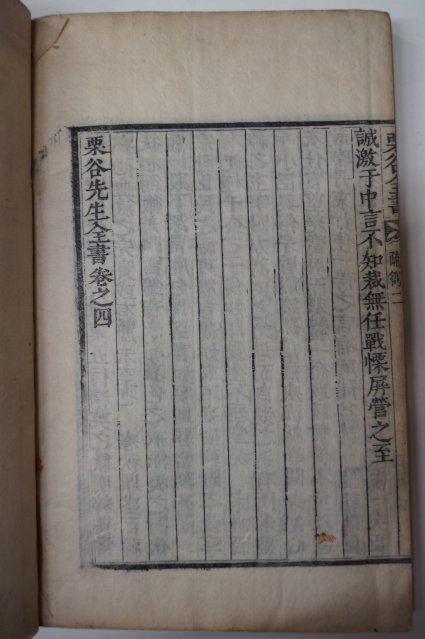 栗谷全書
疏箚二
誠激于中言不知裁無任戰慄屏營之至
栗谷先生全書卷之四